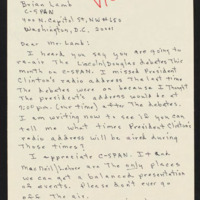 Brian Lamb
C-SPAN
400 N. Capitol St. NW #650
Washington, D.C. 20001
Dear Mr. Lamb:
I heard you say you are going to
rerun the Lincoln-Douglas debates this
month on C-SPAN. I missed President
Clinton's radio address the last time
the debates were on because I thought
The president's address would be at
(our time) after The debates.
I am writing now to see if you can
tell me what times President Clinton's
radio address will be aired during
Those times?
I appreciate C-SPAN. I think
MacNeil/Lehrer are The only places
we can get a balanced presentation
of events. Please don't ever go
off The air.